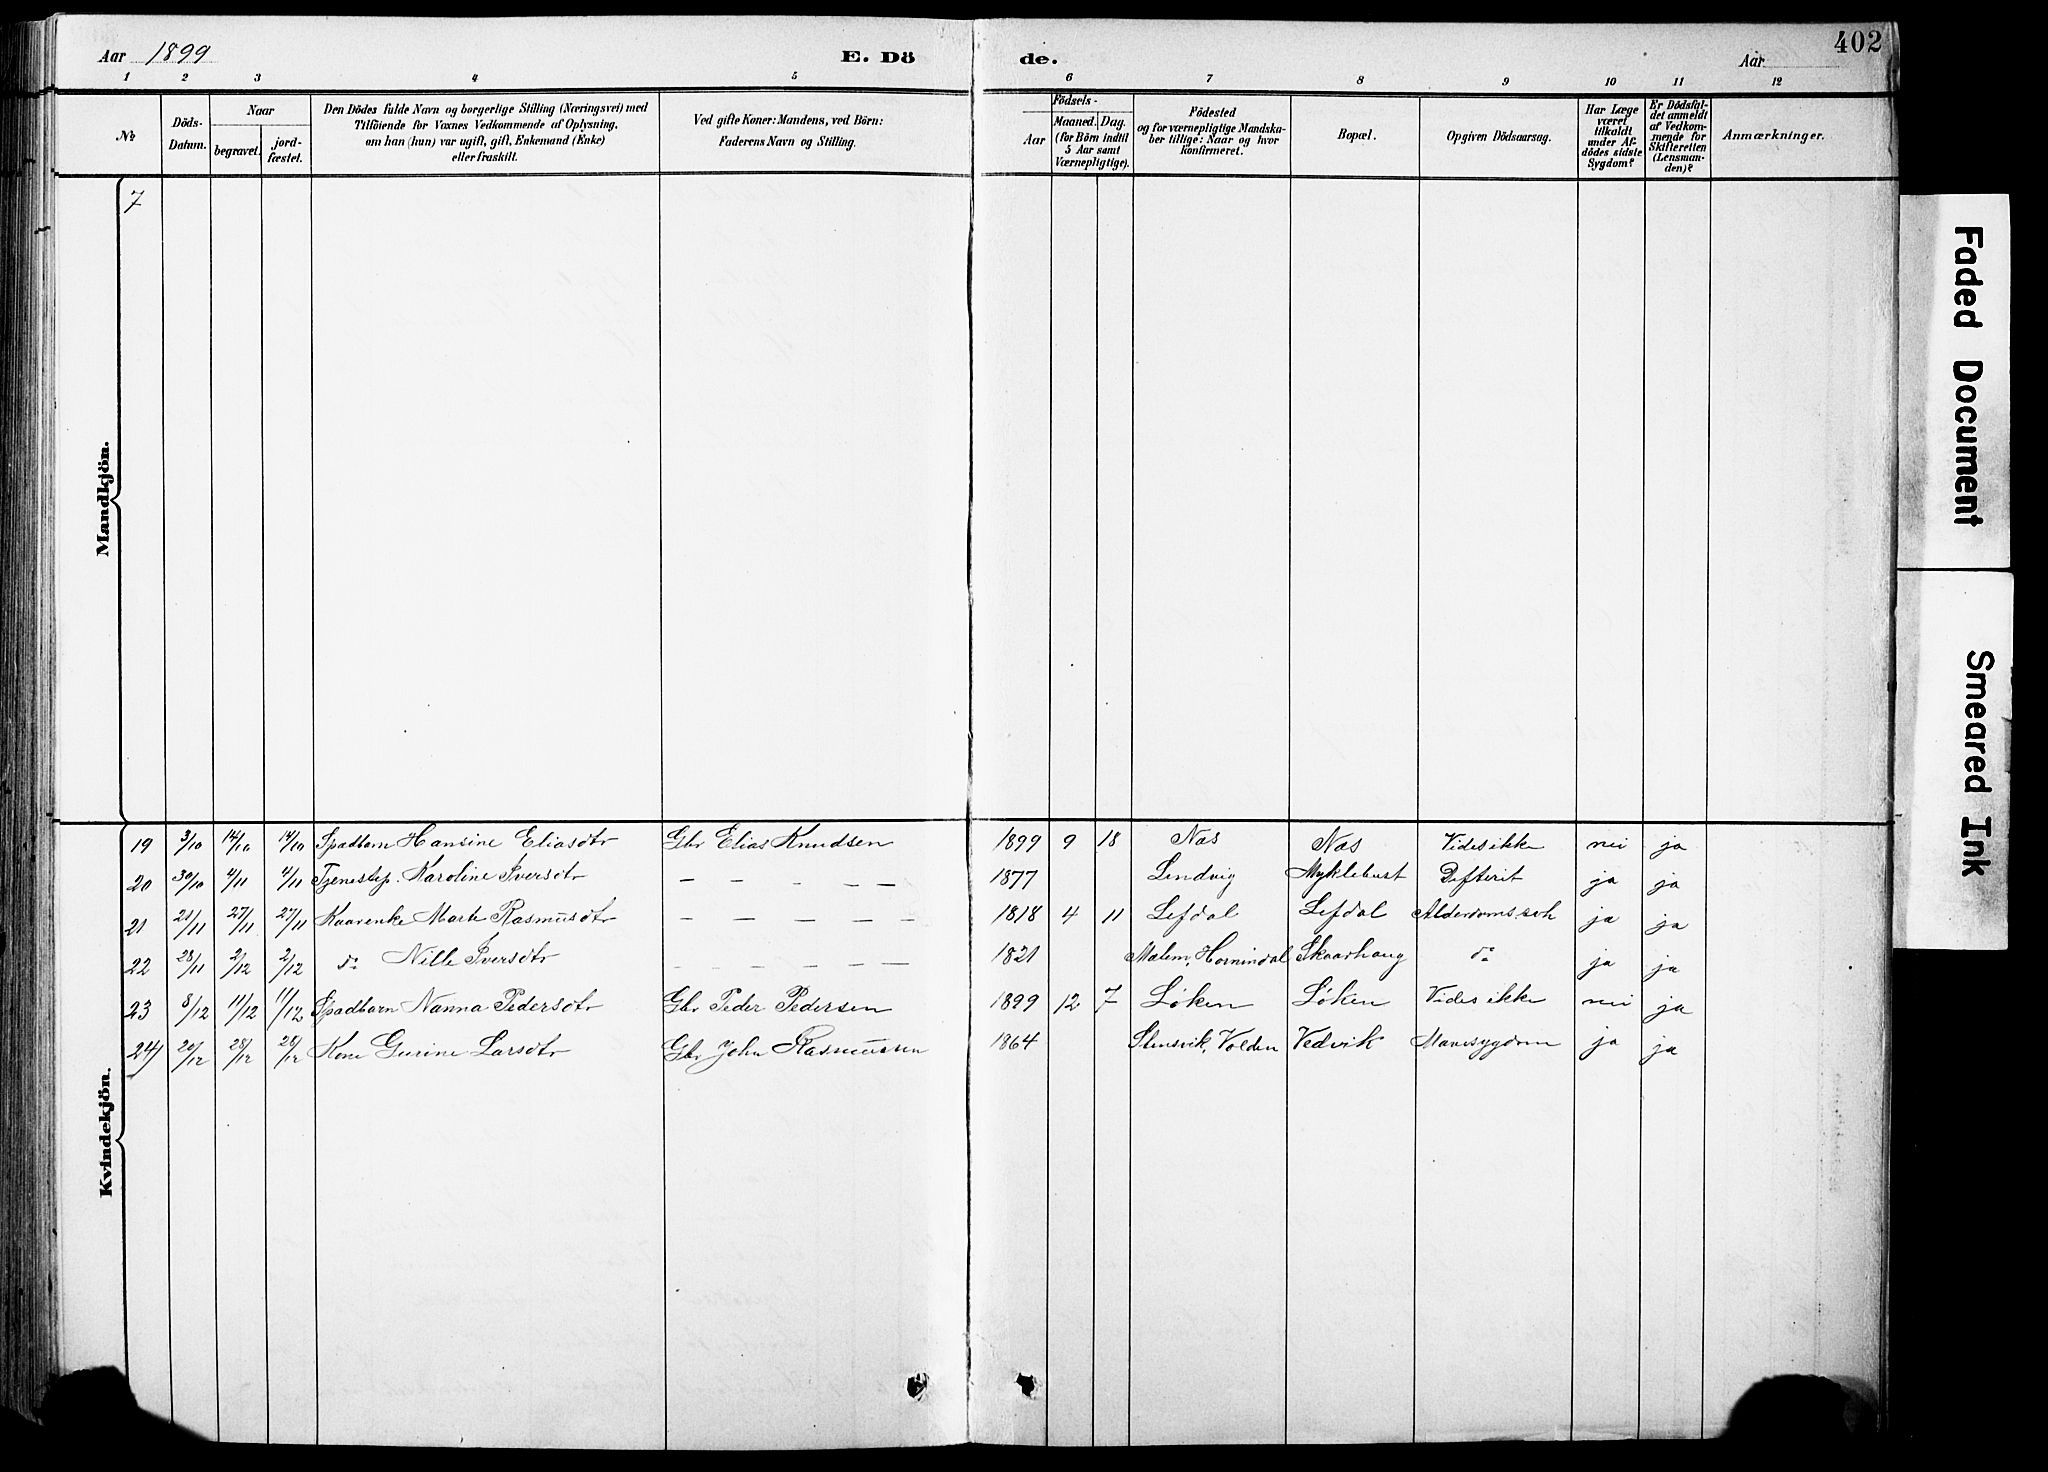 Aar 1899 E. Dö de. Aar 402
1 2 3 4 5 6 7 8 9 10 11 12
No
Döds-Datum.
Naar
begravet.
jord-fæstet.
Den Dödes fulde Navn og borgerlige Stilling (Næringsvei) med
Tilföiende for Voxnes Vedkommende af Oplysning,
om han (hun) var ugift, gift, Enkemand (Enke)
eller fraskilt.
Ved gifte Koner: Mandens, ved Börn:
Faderens Navn og Stilling.
Födsels-
Aar
Maaned. Dag.
(for Börn indtil
5 Aar samt
Værnepligtige).
Födested
og for værnepligtige Mandska-
ber tillige: Naar og hvor
konfirmeret.
Bopæl.
Opgiven Dödsaarsag.
Har Læge
været
tilkaldt
under Af-
dödes sidste
Sygdom?
Er Dödsfal-
det anmeldt
af Vedkom-
mende for
Skifteretten
(Lensman-
den)?
Anmærkninger.
7
Mandkjön.
Kvindekjön.
19 3/10 14/10 14/10 Spadbarn Hansine Eliasdtr Gbr Elias Knudsen 1899 9 18 Nos Nos Vides ikke nei ja
20 30/10 4/11 4/11 Tjenestep. Karoline Iversdtr — — — — — 1877 Lendvig Myklebust Difterit ja ja
21 21/11 27/11 27/11 Kaarenke Marte Rasmusdtr — — — — — 1818 4 11 Lefdal Lefdal Alderdomssvk ja ja
22 28/11 2/12 2/12 do Nille Iversdtr — — — — — 1821 Malem, Hornindal Skaarhaug do ja ja
23 8/12 11/12 11/12 Spadbarn Nanna Pedersdtr Gbr Peder Pedersen 1899 12 7 Løken Løken Vides ikke nei ja
24 20/12 28/12 28/12 Kone Gurine Larsdtr Gbr John Rasmussen 1864 Stensvik, Volden Vedvik Mavesygdom ja ja
Faded Document
Smeared Ink